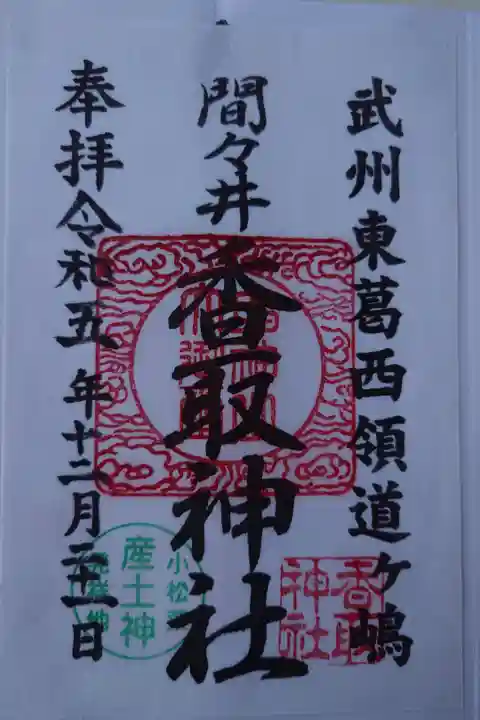 武州東葛西領道ヶ嶋
間々井
香取神社
奉拝令和五年十二月三十一日
香取
神社
小松菜
産土神
発祥地